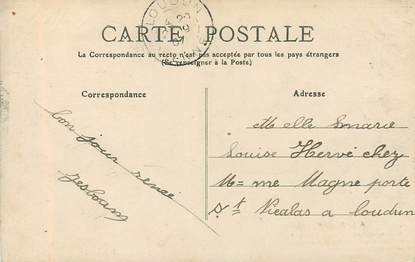 LOUDUN
CARTE POSTALE
La Correspondance au recto n'est pas acceptée par tous les pays étrangers
(Se renseigner à la Poste)
Correspondance
Adresse
bon jour renée
Melle Marie
Louise Hervé chez
M=me Magne porte
St Nicalas a loudun